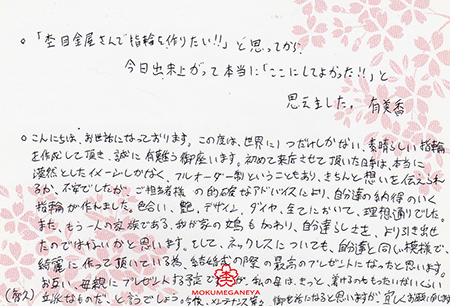 。「杢目金屋さんで指輪を作りたい!!」と思ってから
今日出来上がって本当に「ここにしてよかった!!」と
思えました。 有美香
。こんにちは、お世話になっております。この度は、世界に1つだけしかない、素晴らしい指輪
を作成して頂き、誠に有難う御座います。初めて来店させて頂いた日時は、本当に
漠然としたイメージしかなく、フルオーダー制ということもあり、きちんと想いを伝えられ
るか、不安でしたが、ご担当者様の的確なアドバイスにより、自分達の納得のいく
指輪が作れました。色合い、艶、デザイン、ダイヤ、全てにおいて、理想通りでした。
また、もう一人の家族である、我が家の文鳥も加わり、自分達らしさを、より引き出せ
たのではないかと思います。そして、ネックレスについても、自分達と同じ模様で、
綺麗に作って頂いている為、結婚式の際の最高のプレゼントになったと思います。
お互い、母親にプレゼントする予定ですが、私の母は、きっと、着けるのももったいないくらい
だ、と言うでしょう。今後、メンテナンス等で御世話になると思いますが、
MOKUMEGANEYA